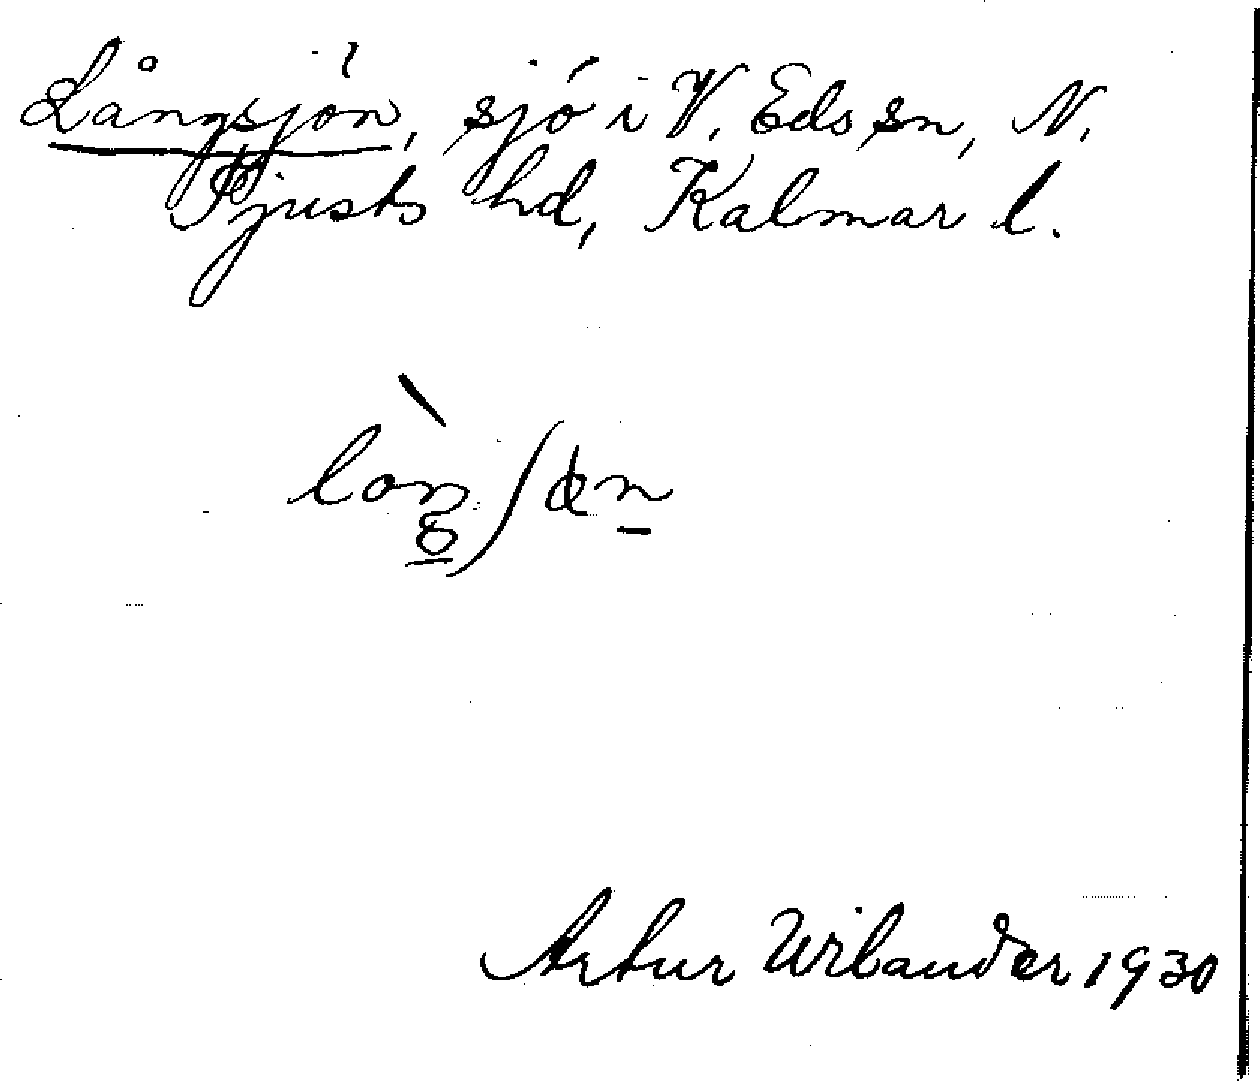 Långsjön, sjö i V. Eds sn, N.
Tjusts hd, Kalmar l.
Artur Wilander 1930